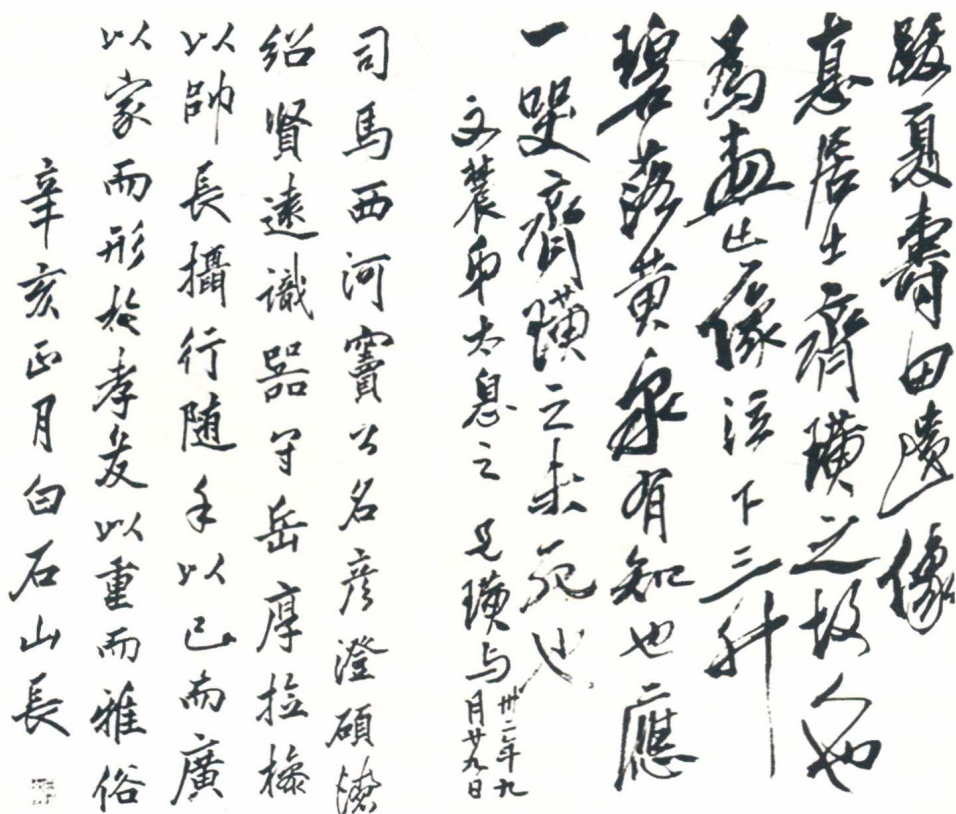 跋夏壽田遺像
直心居士齊璜之故人也
為畫此像泣下三升
碧落黃泉有知也應
一哭齊璜之未死也
文農弟太息之 兄璜与
卅二年九
月廿九日
司馬西河竇公名彥澄碩
紹賢遠識器守岳厚撿操
以帥長攝行随手以已而廣
以家而形於孝友以重而雅俗
辛亥正月白石山長